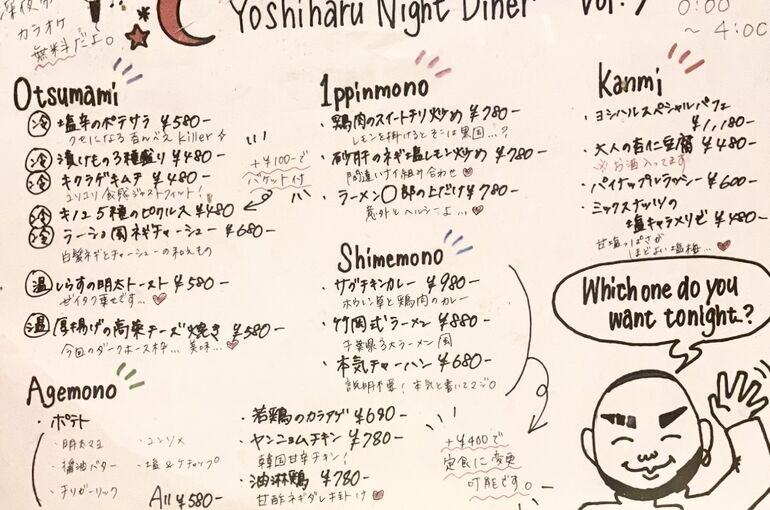 Yoshiharu Night Diner vol.7
0:00
～4:00
カラオケ
無料だよ。
Otsumami
冷 塩辛のポテサラ ¥580-
クセになる呑んべえ killer
冷 漬けもの3種盛り ¥480-
冷 キクラゲキムチ ¥480-
コリコリ食感ジャストフィット！
冷 キノコ5種のピクルス ¥480-
冷 ラーショ風ネギチャーシュー ¥680-
白髪ネギとチャーシューの和えもの
+¥100-で
バゲット付
温 しらすの明太トースト ¥580-
ゼイタク乗せです…
温 厚揚げの高菜チーズ焼き ¥580-
今回のダークホース枠… 美味…
1ppinmono
・鶏肉のスイートチリ炒め ¥780-
レモンを掛けるとそこは異国…?
・砂肝のネギ塩レモン炒め ¥780-
間違いナイ組み合わせ
・ラーメン〇郎の上だけ ¥780-
意外とヘルシーよ…
Shimemono
・サグチキンカレー ¥980-
ホウレン草と鶏肉のカレー
・竹岡式ラーメン ¥880-
千葉県3大ラーメン風
・本気チャーハン ¥680-
説明不要！本気と書いてマジ。
+¥400で
定食に変更
可能です。
Kanmi
・ヨシハルスペシャルパフェ
¥1,180-
・大人の杏仁豆腐 ¥480-
※お酒入ってます
・パイナップルラッシー ¥600-
・ミックスナッツの
塩キャラメリゼ ¥480-
甘塩っぱさが
ほどよい塩梅…
Which one do you
want tonight?
Agemono
・ポテト
・明太マヨ ・コンソメ
・醤油バター ・塩&ケチャップ
・チリガーリック
All ¥580-
・若鶏のカラアゲ ¥680-
・ヤンニョムチキン ¥780-
韓国甘辛チキン！
・油淋鶏 ¥780-
甘酢ネギダレ